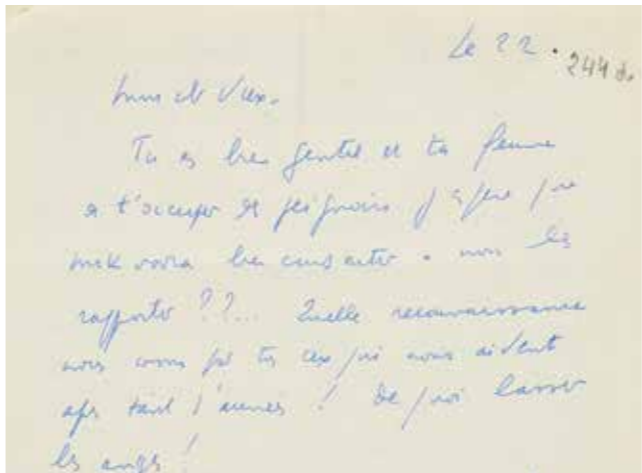 Le 22.
244 do
Vieux.
Tu es bien gentil et ta femme
de t'occuper de peignoirs j'espère que
voudra bien consentir à nous les
rapporter ??... Quelle reconnaissance
nous avons pr ts ceux qui nous aident
aps tant d'années ! De quoi lasser
les anges !